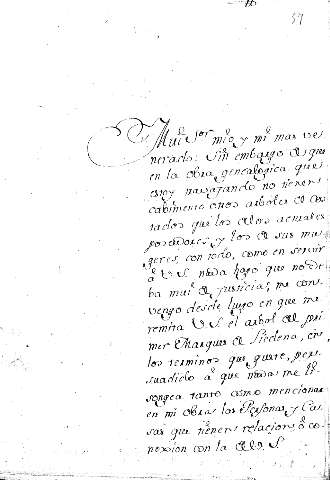 59
Mui Sor mio, y mi mas ve
nerado: Sin embargo de que
en la obra genealogica que
estoy travajando no tienen
cabimiento otros arboles de cos
tados que los de los actuales
poseedores, y los de sus mu
geres, con todo, como en servir
a V.S. nada hago que no de
ba mui de justicia; me con
vengo desde luego en que me
remita V.S. el arbol del pri
mer Marques de en
los terminos que quiere, per
suadido a que nada me li
songea tanto como mencionar
en mi obra las Personas, y Ca
sas que tienen relacion, o co
nexion con la de V.S.